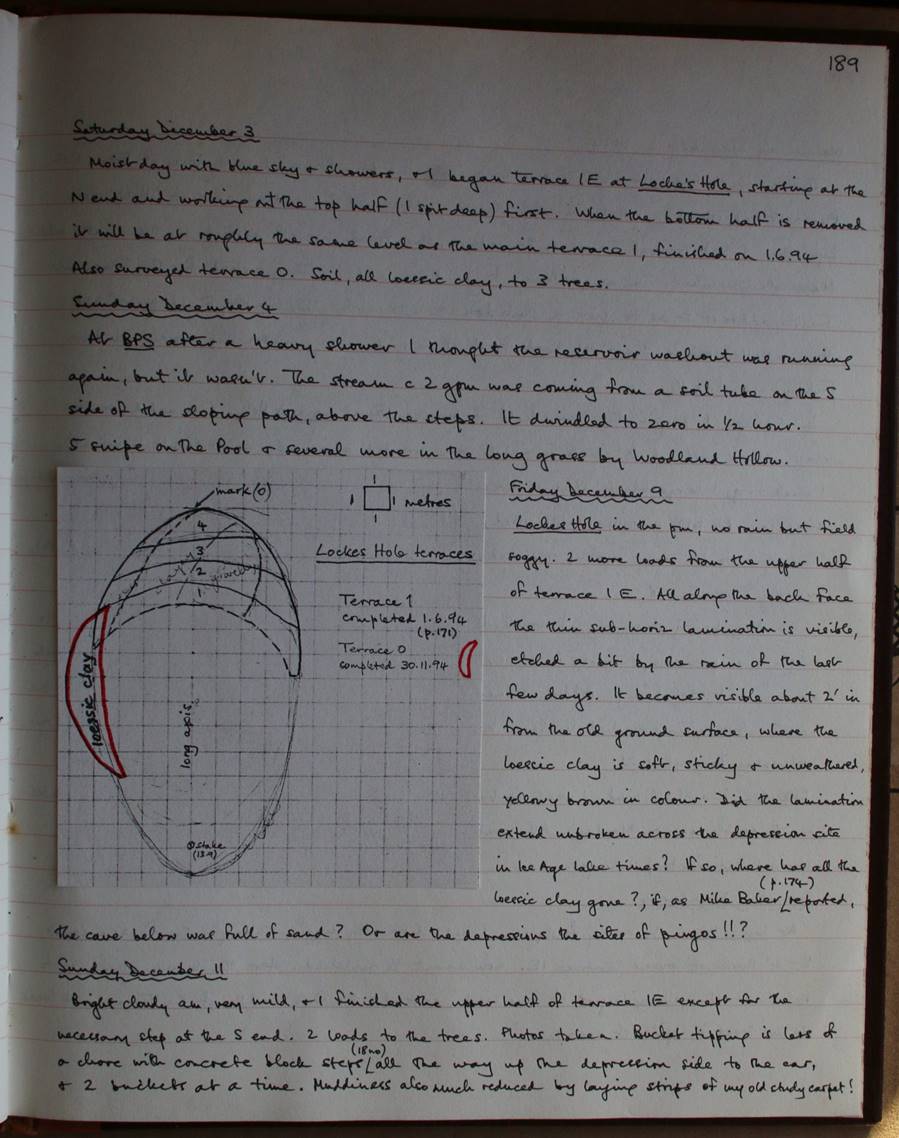 189
Saturday December 3
Moist day with blue sky & showers, & I began terrace 1E at Locke's Hole, starting at the
N end and working out the top half (1 spit deep) first. When the bottom half is removed
it will be at roughly the same level as the main terrace 1, finished on 1.6.94
Also surveyed terrace 0. Soil, all loessic clay, to 3 trees.
Sunday December 4
At BPS after a heavy shower I thought the reservoir washout was running
again, but it wasn't. The stream c 2 gpm was coming from a soil tube on the S
side of the sloping path, above the steps. It dwindled to zero in 1/2 hour.
5 snipe on the Pool & several more in the long grass by Woodland Hollow.
mark (0)
4
3
2
1
gravelly
loessic clay
long axis
stake
1 1 metres
1
Lockes Hole terraces
Terrace 1
completed 1.6.94
(p.171)
Terrace 0
completed 30.11.94
Friday December 9
Lockes Hole in the pm, no rain but field
foggy. 2 more loads from the upper half
of terrace 1E. All along the back face
the thin sub-horiz lamination is visible,
etched a bit by the rain of the last
few days. It becomes visible about 2' in
from the old ground surface, where the
loessic clay is soft, sticky & unweathered,
yellowy brown in colour. Did the lamination
extend unbroken across the depression site
in Ice Age lake times? If so, where has all the
loessic clay gone?, if, as Mike Baker (p.174) reported,
the cave below was full of sand? Or are the depressions the sites of pingos!!?
Sunday December 11
Bright cloudy am, very mild, & I finished the upper half of terrace 1E except for the
necessary step at the S end. 2 loads to the trees. Photos taken. Bucket tipping is less of
a chore with concrete block steps (18no) all the way up the depression side to the car,
& 2 buckets at a time. Muddiness also much reduced by laying strips of my old study carpet!